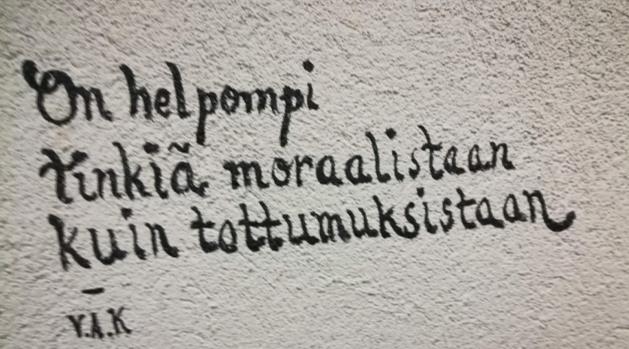 On helpompi
tinkiä moraalistaan
kuin tottumuksistaan
–
Y.A.K